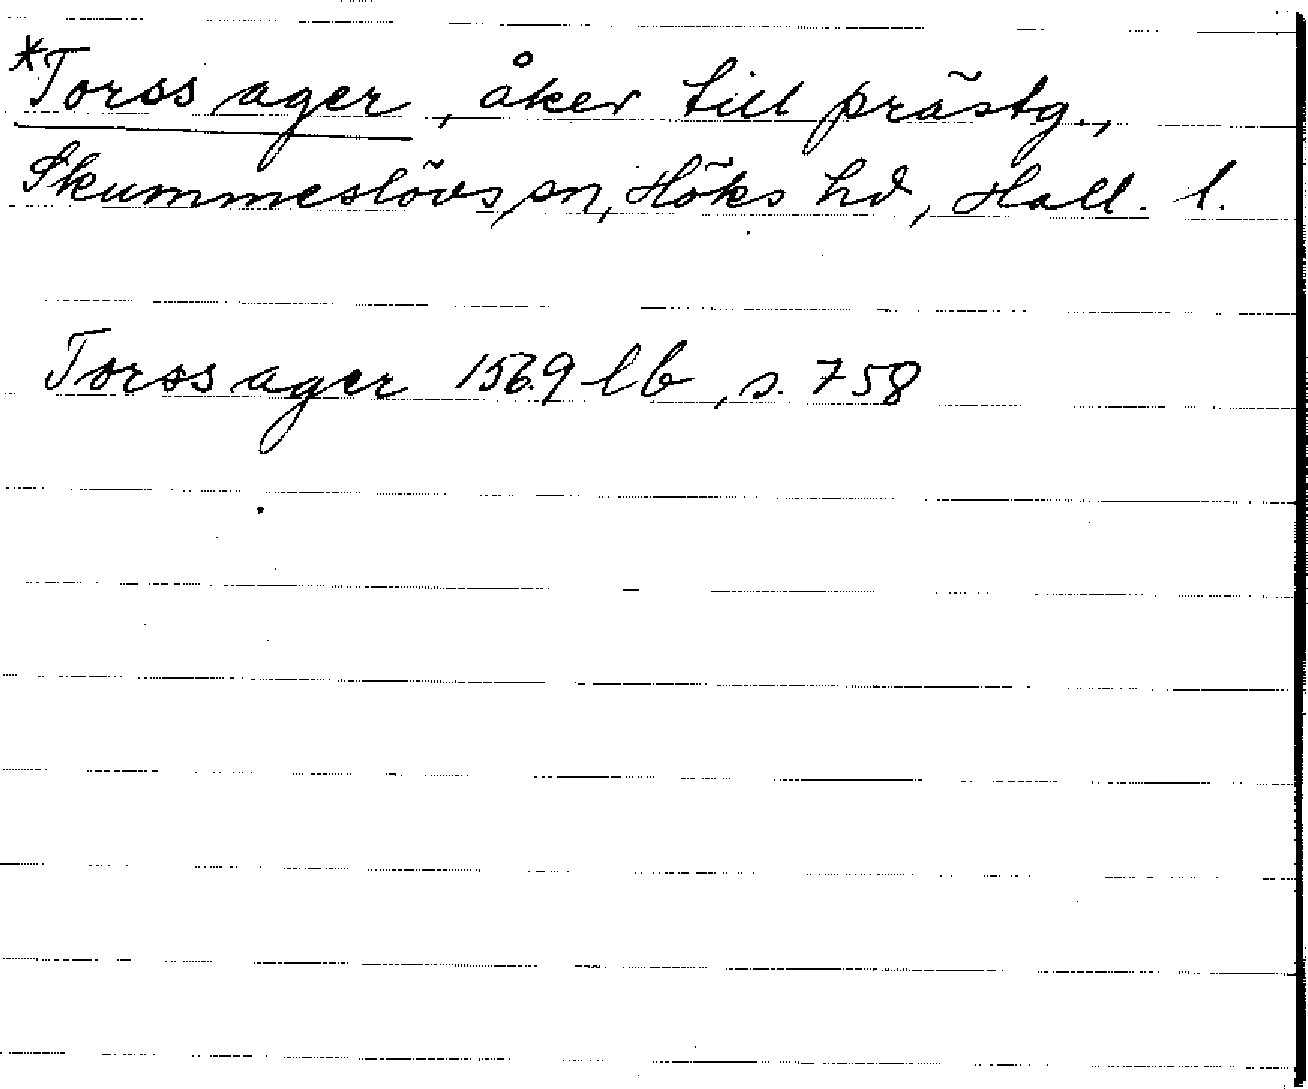 *Torss ager, åker till prästg.,
Skummeslövs sn, Höks hd, Hall. l.
Torss ager 1569 lb, s. 758